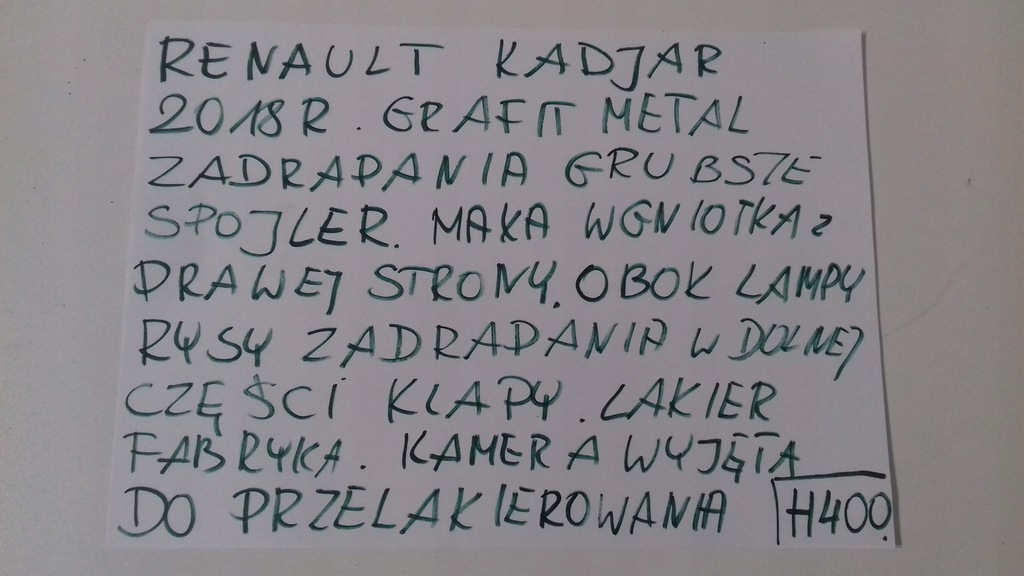 RENAULT KADJAR
2018R. GRAFIT METAL
ZADRAPANIA GRUBSZE
SPOJLER. MAKA WGNIOTKA Z
PRAWEJ STRONY. OBOK LAMPY
RYSY ZADRAPANIA W DOLNEJ
CZĘŚCI KLAPY. LAKIER
FABRYKA. KAMERA WYJĘTA
DO PRZELAKIEROWANIA H400.